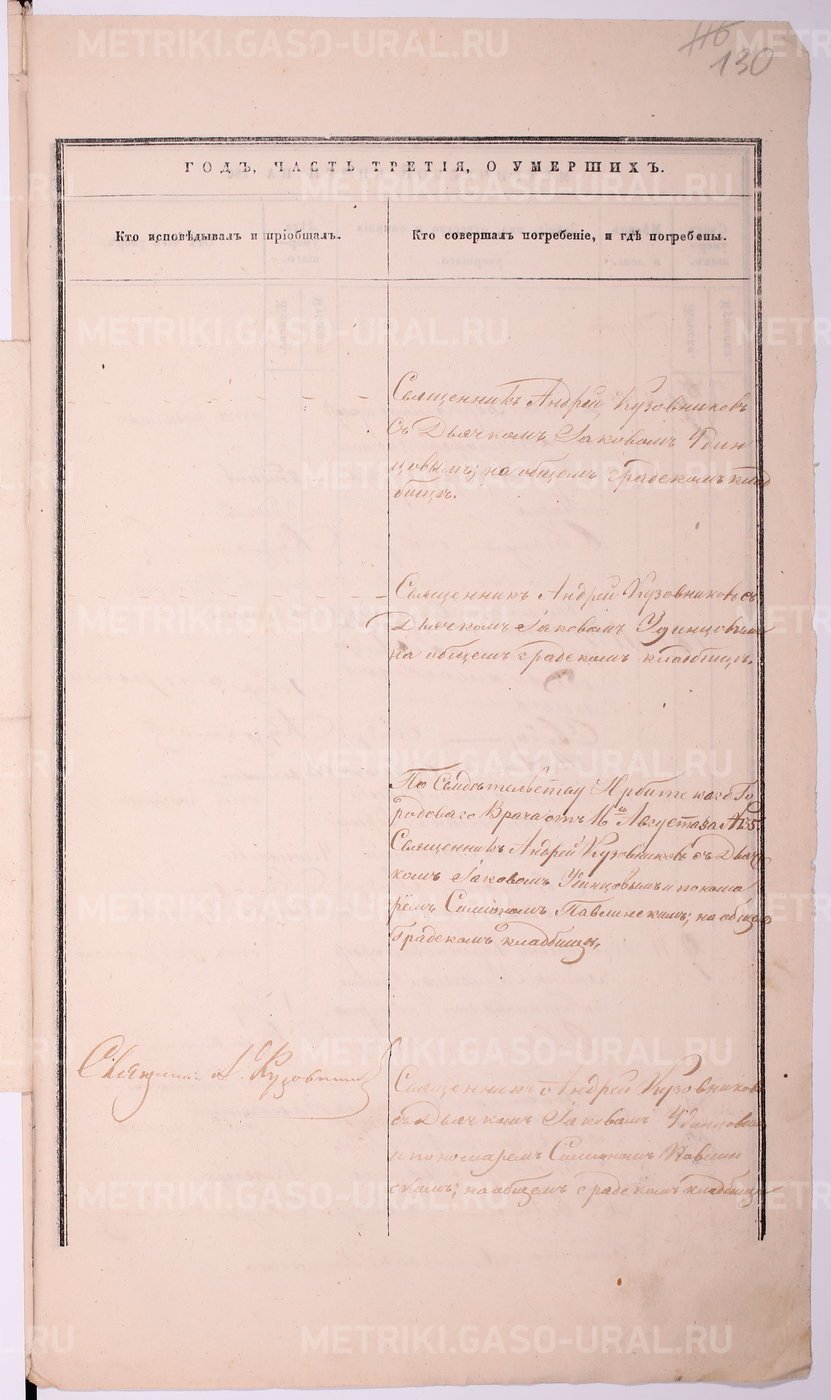 116
130
ГОДЪ, ЧАСТЬ ТРЕТІЯ, О УМЕРШИХЪ.
Кто исповѣдывалъ и пріобщалъ.
Кто совершалъ погребеніе, и гдѣ погребены.
Священникъ Андрей Кузовниковъ
съ Дьячкомъ Іаковомъ Удин
цовымъ; на общемъ градскомъ клад
бищѣ.
Священникъ Андрей Кузовниковъ съ
Дьячкомъ Іаковомъ Удинцовымъ
на общемъ градскомъ кладбищѣ.
По Свидѣтельству Ирбитскаго Го
родоваго Врача отъ 16го Августа за №
Священникъ Андрей Кузовниковъ съ Дьяч
комъ Іаковомъ Удинцовымъ и понома
рёмъ Симіономъ Павлинскимъ; на общемъ
Градскомъ кладбищѣ.
Священникъ А. Кузовников
Священникъ Андрей Кузовников
съ Дьячкомъ Іаковомъ Удинцовым
и пономаремъ Симіономъ Павлин
скимъ; на общемъ градскомъ кладбищѣ
METRIKI.GASO-URAL.RU